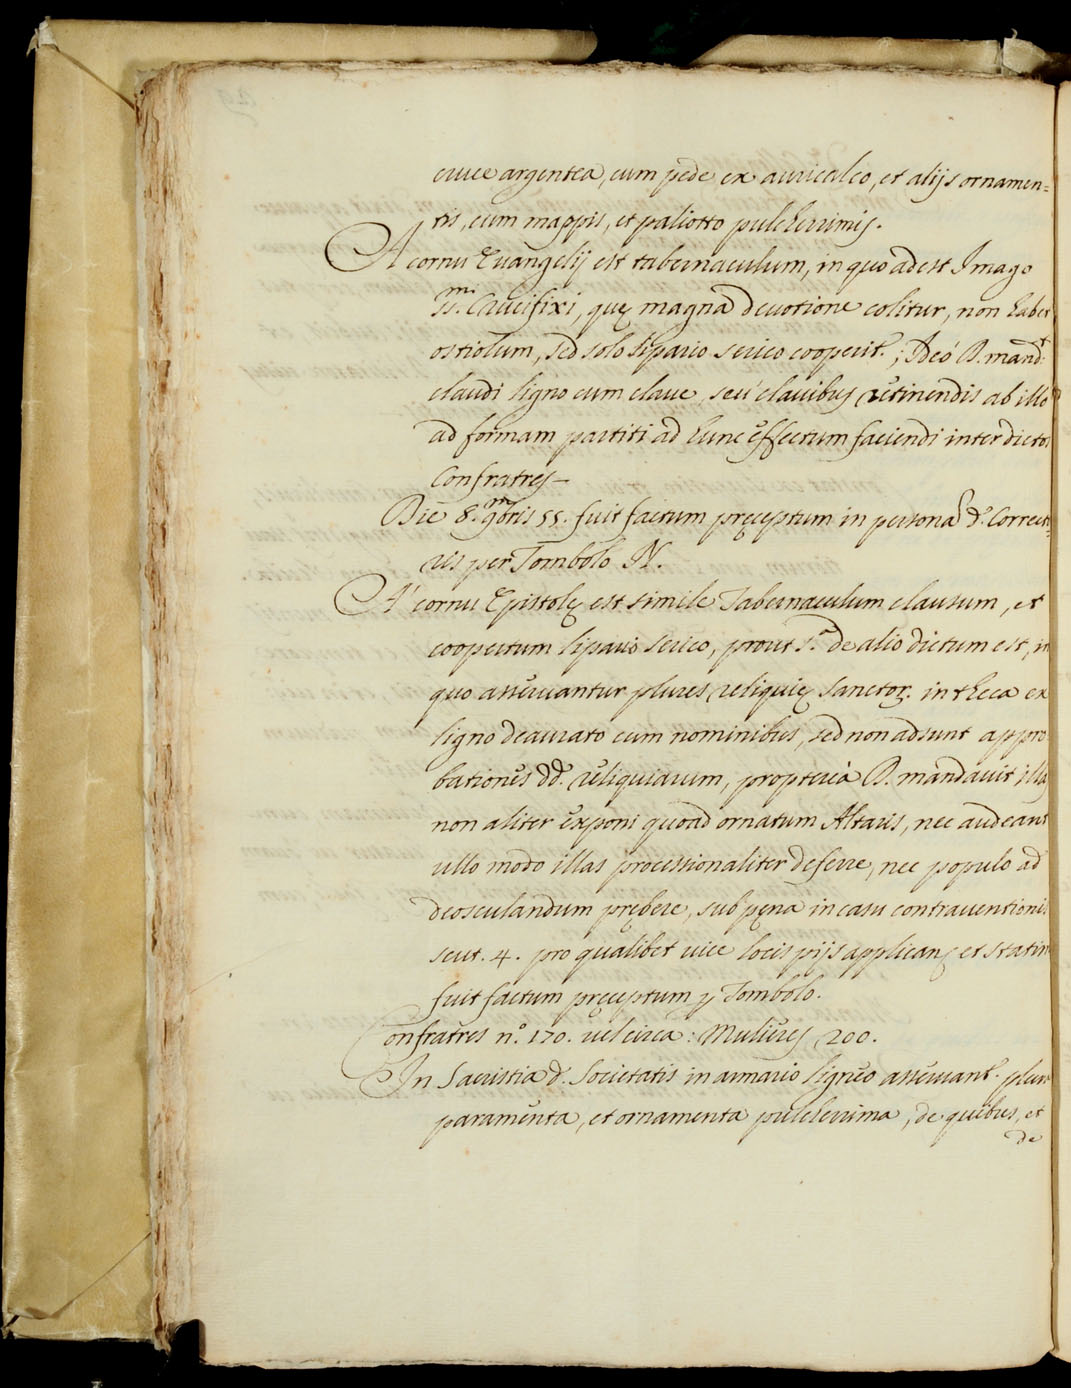 cruce argentea, cum pede ex auricalco, et alijs ornamen=
tis, cum mappis, et paliotto pulcherrimis.
A cornu Euangelij est tabernaculum, in quo adest Imago
SS.mi Crucifixi, quę magna deuotione colitur, non habet
ostiolum, sed solo sipario serico cooperit.r; Ideò D. mand.t
claudi ligno cum claue, seù clauibus retinendis ab illo
ad formam partiti ad hunc effectum faciendi inter dictos
Confratres—
Die 8. 9mbris 55. fuit factum pręceptum in persona d. Correct=
ris per Tombolo N.
A' cornu Epistolę est simile Tabernaculum clausum, et
coopertum sipario serico, prout s.a de alio dictum est, in
quo asseruantur plures reliquię Sanctor. in theca ex
ligno deaurato cum nominibus, sed non adsunt appro
bationes dd. reliquiarum, propterea D. mandauit illa
non aliter exponi quoad ornatum Altaris, nec audeant
ullo modo illas processionaliter deferre, nec populo ad
deosculandum prębere, sub pęna in casu contrauentionis
scut. 4. pro qualibet uice locis pijs applican. et statim
fuit factum pręceptum p Tombolo.
Confratres n.o 170. uel circa: Mulieres 200.
In Sacristia d. Societatis in armario ligneo asseruant.r plur
paramenta, et ornamenta pulcherrima, de quibus, et
de